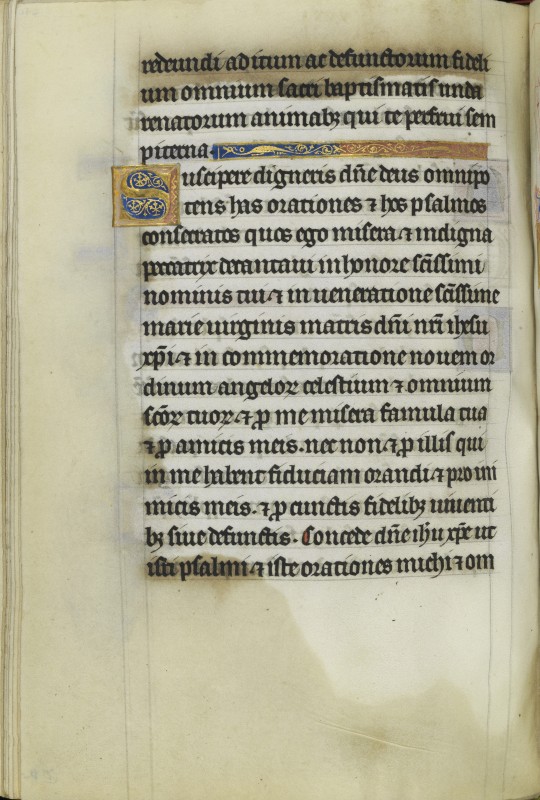 redeundi aditum ac defunctorum fideli
um omnium sacri baptismatis unda
renatorum animabꝫ qui te perfrui sem
piterna
Suscipere digneris dn̄e deus omnipo
tens has orationes ⁊ hos psalmos
consecratos quos ego misera ⁊ indigna
peccatrix decantaui in honore sc̄issimi
nominis tui ⁊ in ueneratione sc̄issime
marie uirginis matris dn̄i nr̄i ihesu
xp̄i ⁊ in commemoratione nouem or
dinum angeloꝝ celestium ⁊ omnium
sc̄oꝝ tuoꝝ ⁊ ꝓ me misera famula tua
⁊ ꝓ amicis meis. nec non ⁊ ꝓ illis qui
in me habent fiduciam orandi ⁊ pro ini
micis meis. ⁊ ꝓ cunctis fidelibꝫ uiuenti
bꝫ siue defunctis. Concede dn̄e ih̄u xp̄e ut
isti psalmi ⁊ iste orationes michi ⁊ om